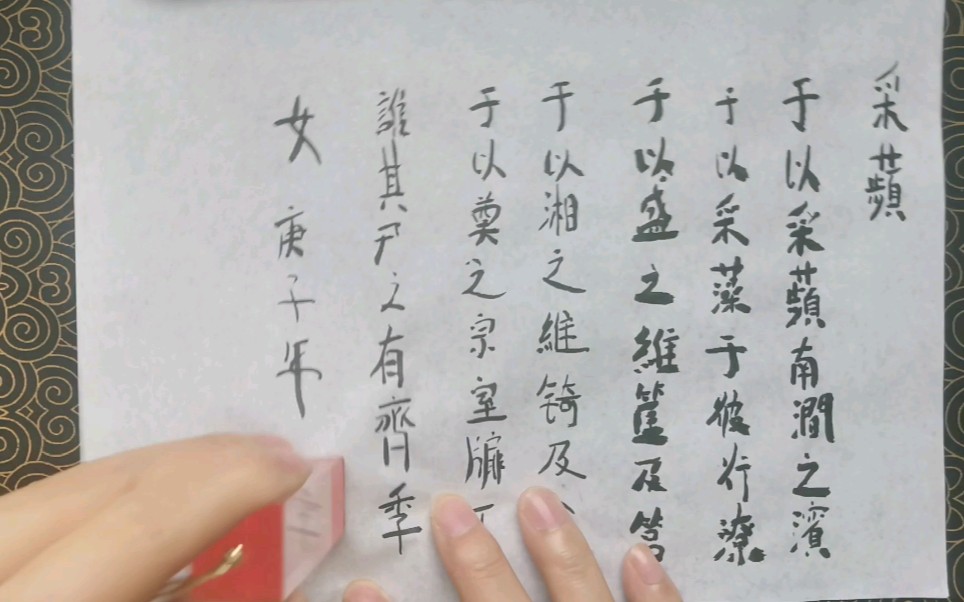 采蘋
于以采蘋南澗之濱
于以采藻于彼行潦
于以盛之維筐及筥
于以湘之維錡及
于以奠之宗室牖下
誰其尸之有齊季
女 庚子年